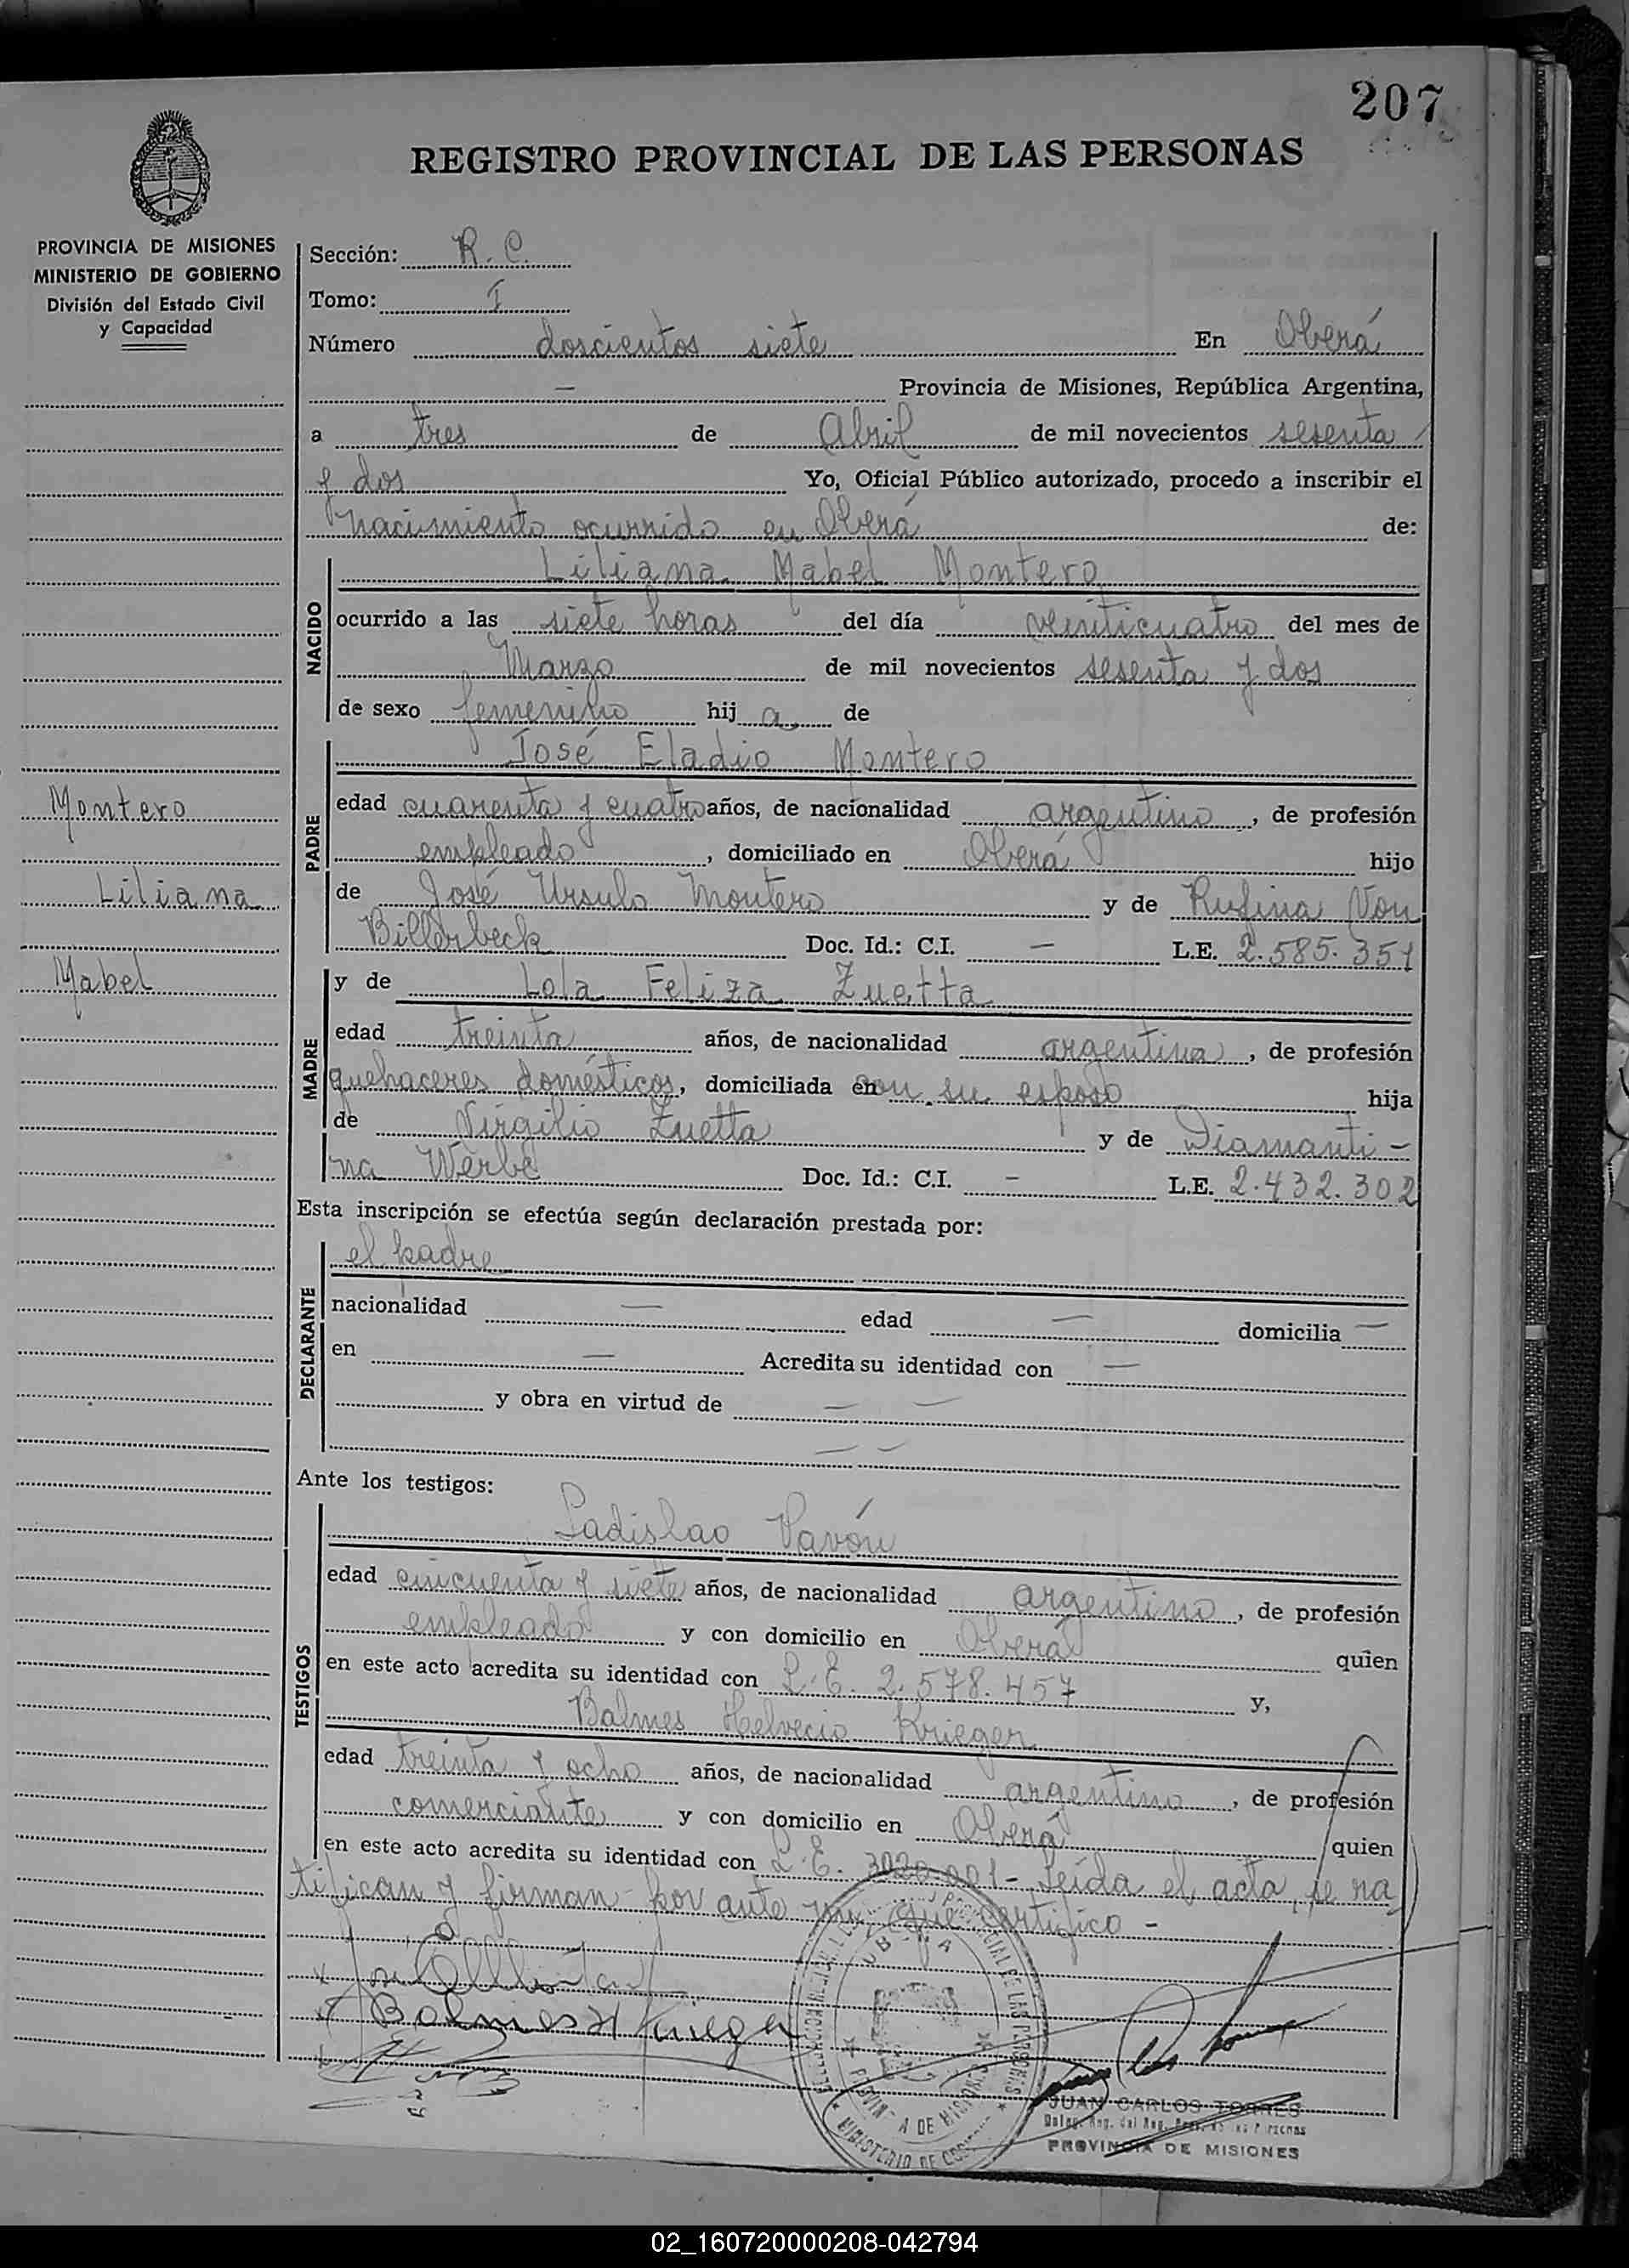 207
REGISTRO PROVINCIAL DE LAS PERSONAS
PROVINCIA DE MISIONES
MINISTERIO DE GOBIERNO
División del Estado Civil
y Capacidad
Sección: R. C.
Tomo: I
Número doscientos siete En Oberá
— Provincia de Misiones, República Argentina,
a tres de Abril de mil novecientos sesenta
y dos Yo, Oficial Público autorizado, procedo a inscribir el
nacimiento ocurrido en Oberá de:
NACIDO
Liliana Mabel Montero
ocurrido a las siete horas del día veinticuatro del mes de
Marzo de mil novecientos sesenta y dos
de sexo femenino hij a de
PADRE
José Eladio Montero
edad cuarenta y cuatro años, de nacionalidad argentino, de profesión
empleado, domiciliado en Oberá hijo
de José Ursulo Montero y de Rufina Von
Billerbeck Doc. Id.: C.I. — L.E. 2.585.351
Montero
Liliana
Mabel
MADRE
y de Lola Feliza Zuetta
edad treinta años, de nacionalidad argentina, de profesión
quehaceres domésticos, domiciliada en con su esposo hija
de Virgilio Zuetta y de Diamanti-
na Werbe Doc. Id.: C.I. — L.E. 2.432.302
Esta inscripción se efectúa según declaración prestada por:
DECLARANTE
el padre
nacionalidad — edad — domicilia —
en — Acredita su identidad con —
y obra en virtud de — —
— —
Ante los testigos:
TESTIGOS
Ladislao Pavón
edad cincuenta y siete años, de nacionalidad argentino, de profesión
empleado y con domicilio en Oberá quien
en este acto acredita su identidad con L.E. 2.578.457 y,
Balmes Helvecio Krieger
edad treinta y ocho años, de nacionalidad argentino, de profesión
comerciante y con domicilio en Oberá quien
en este acto acredita su identidad con L.E. 3020.001- Leída el acta, se ra
tifican y firman por ante mi, que certifico -
Balmes H Krieger
JUAN CARLOS TORRES
PROVINCIA DE MISIONES
02_160720000208-042794